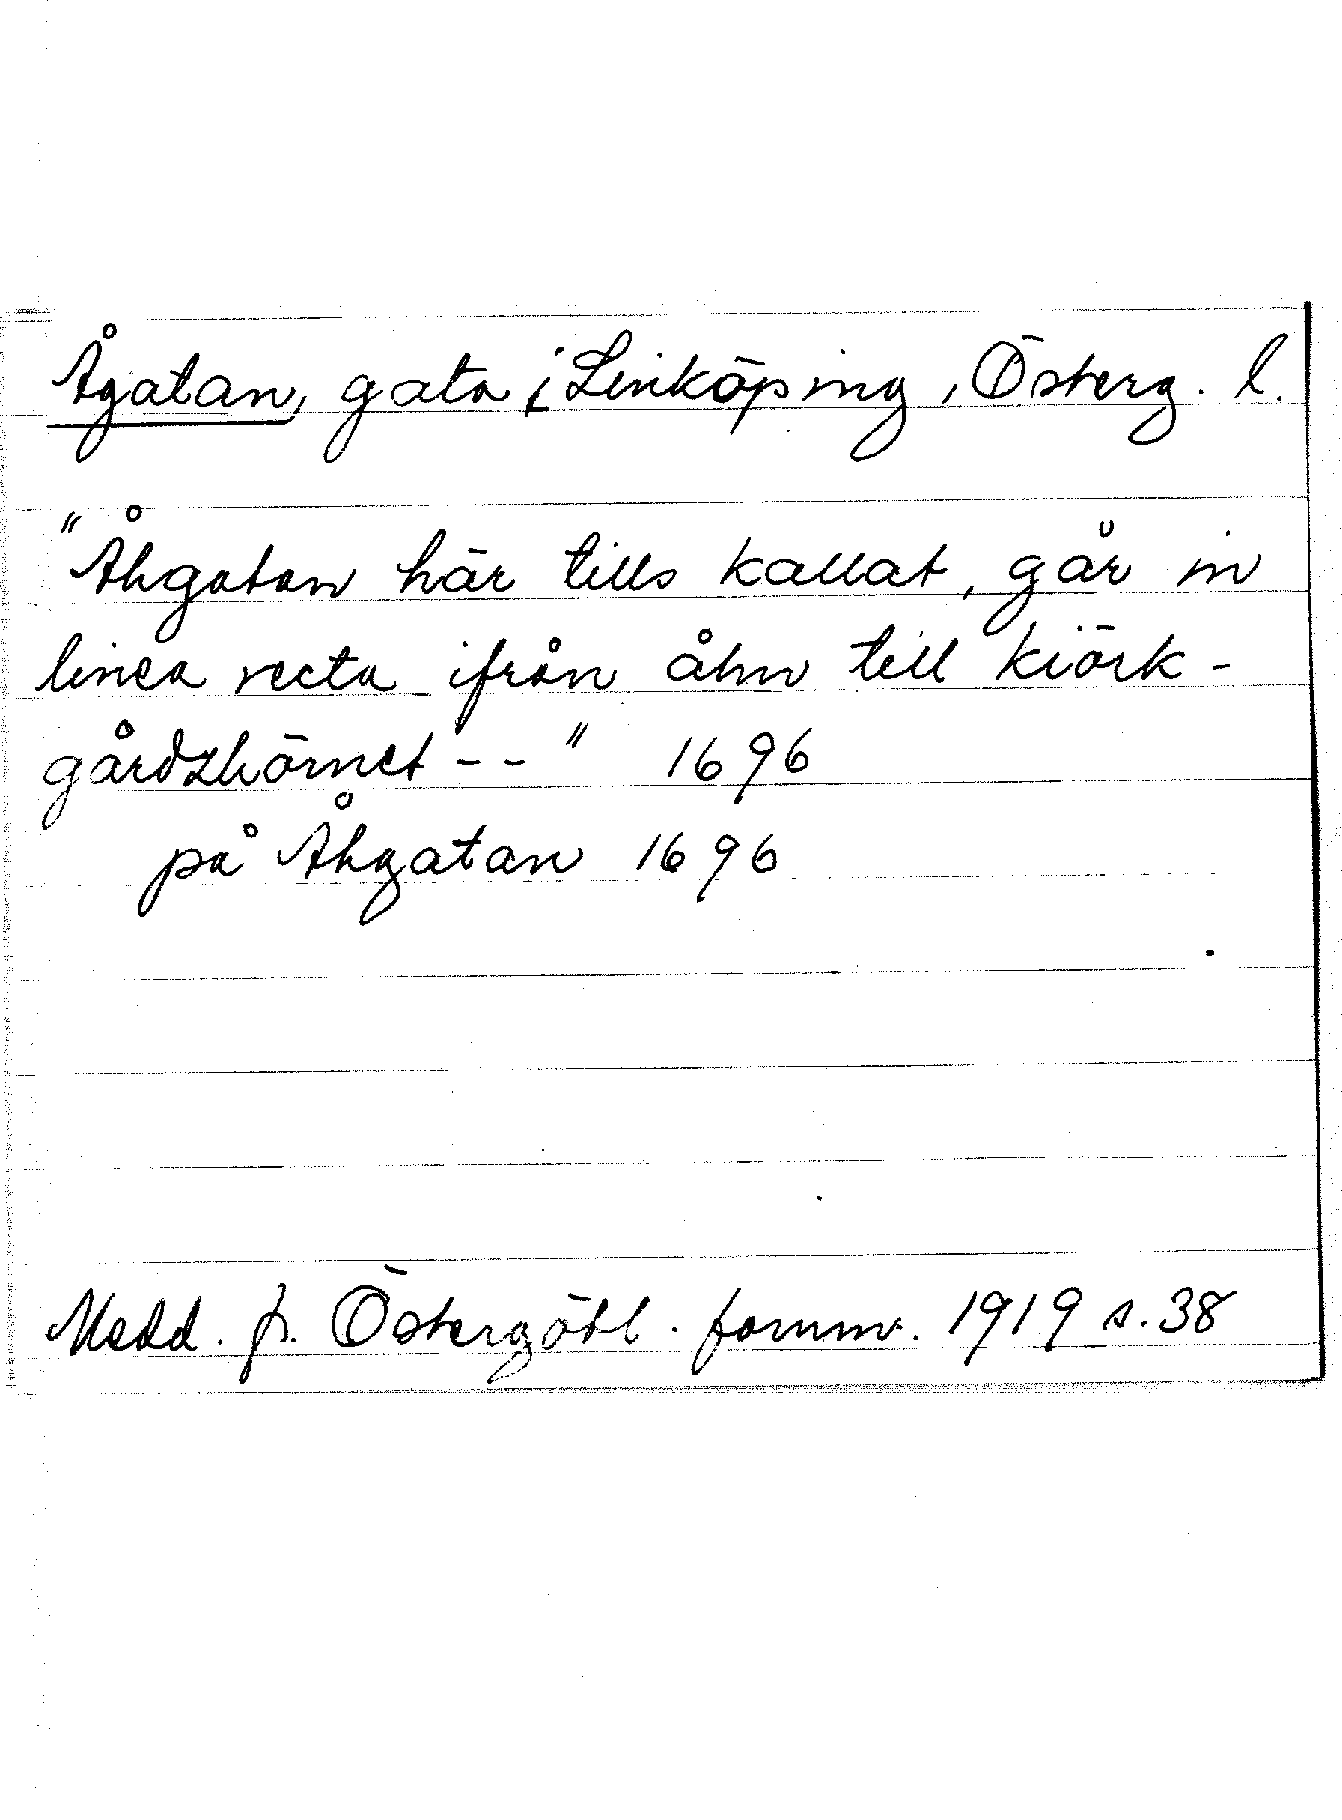 Ågatan, gata i Linköping, Österg. l.
"Åhgatan här tills kallat, går in
linea recta ifrån åhn till kiörk-
gårdzhörnet -- " 1696
på Åhgatan 1696
Medd. fr. Östergötl. fornmv. 1919 s. 38